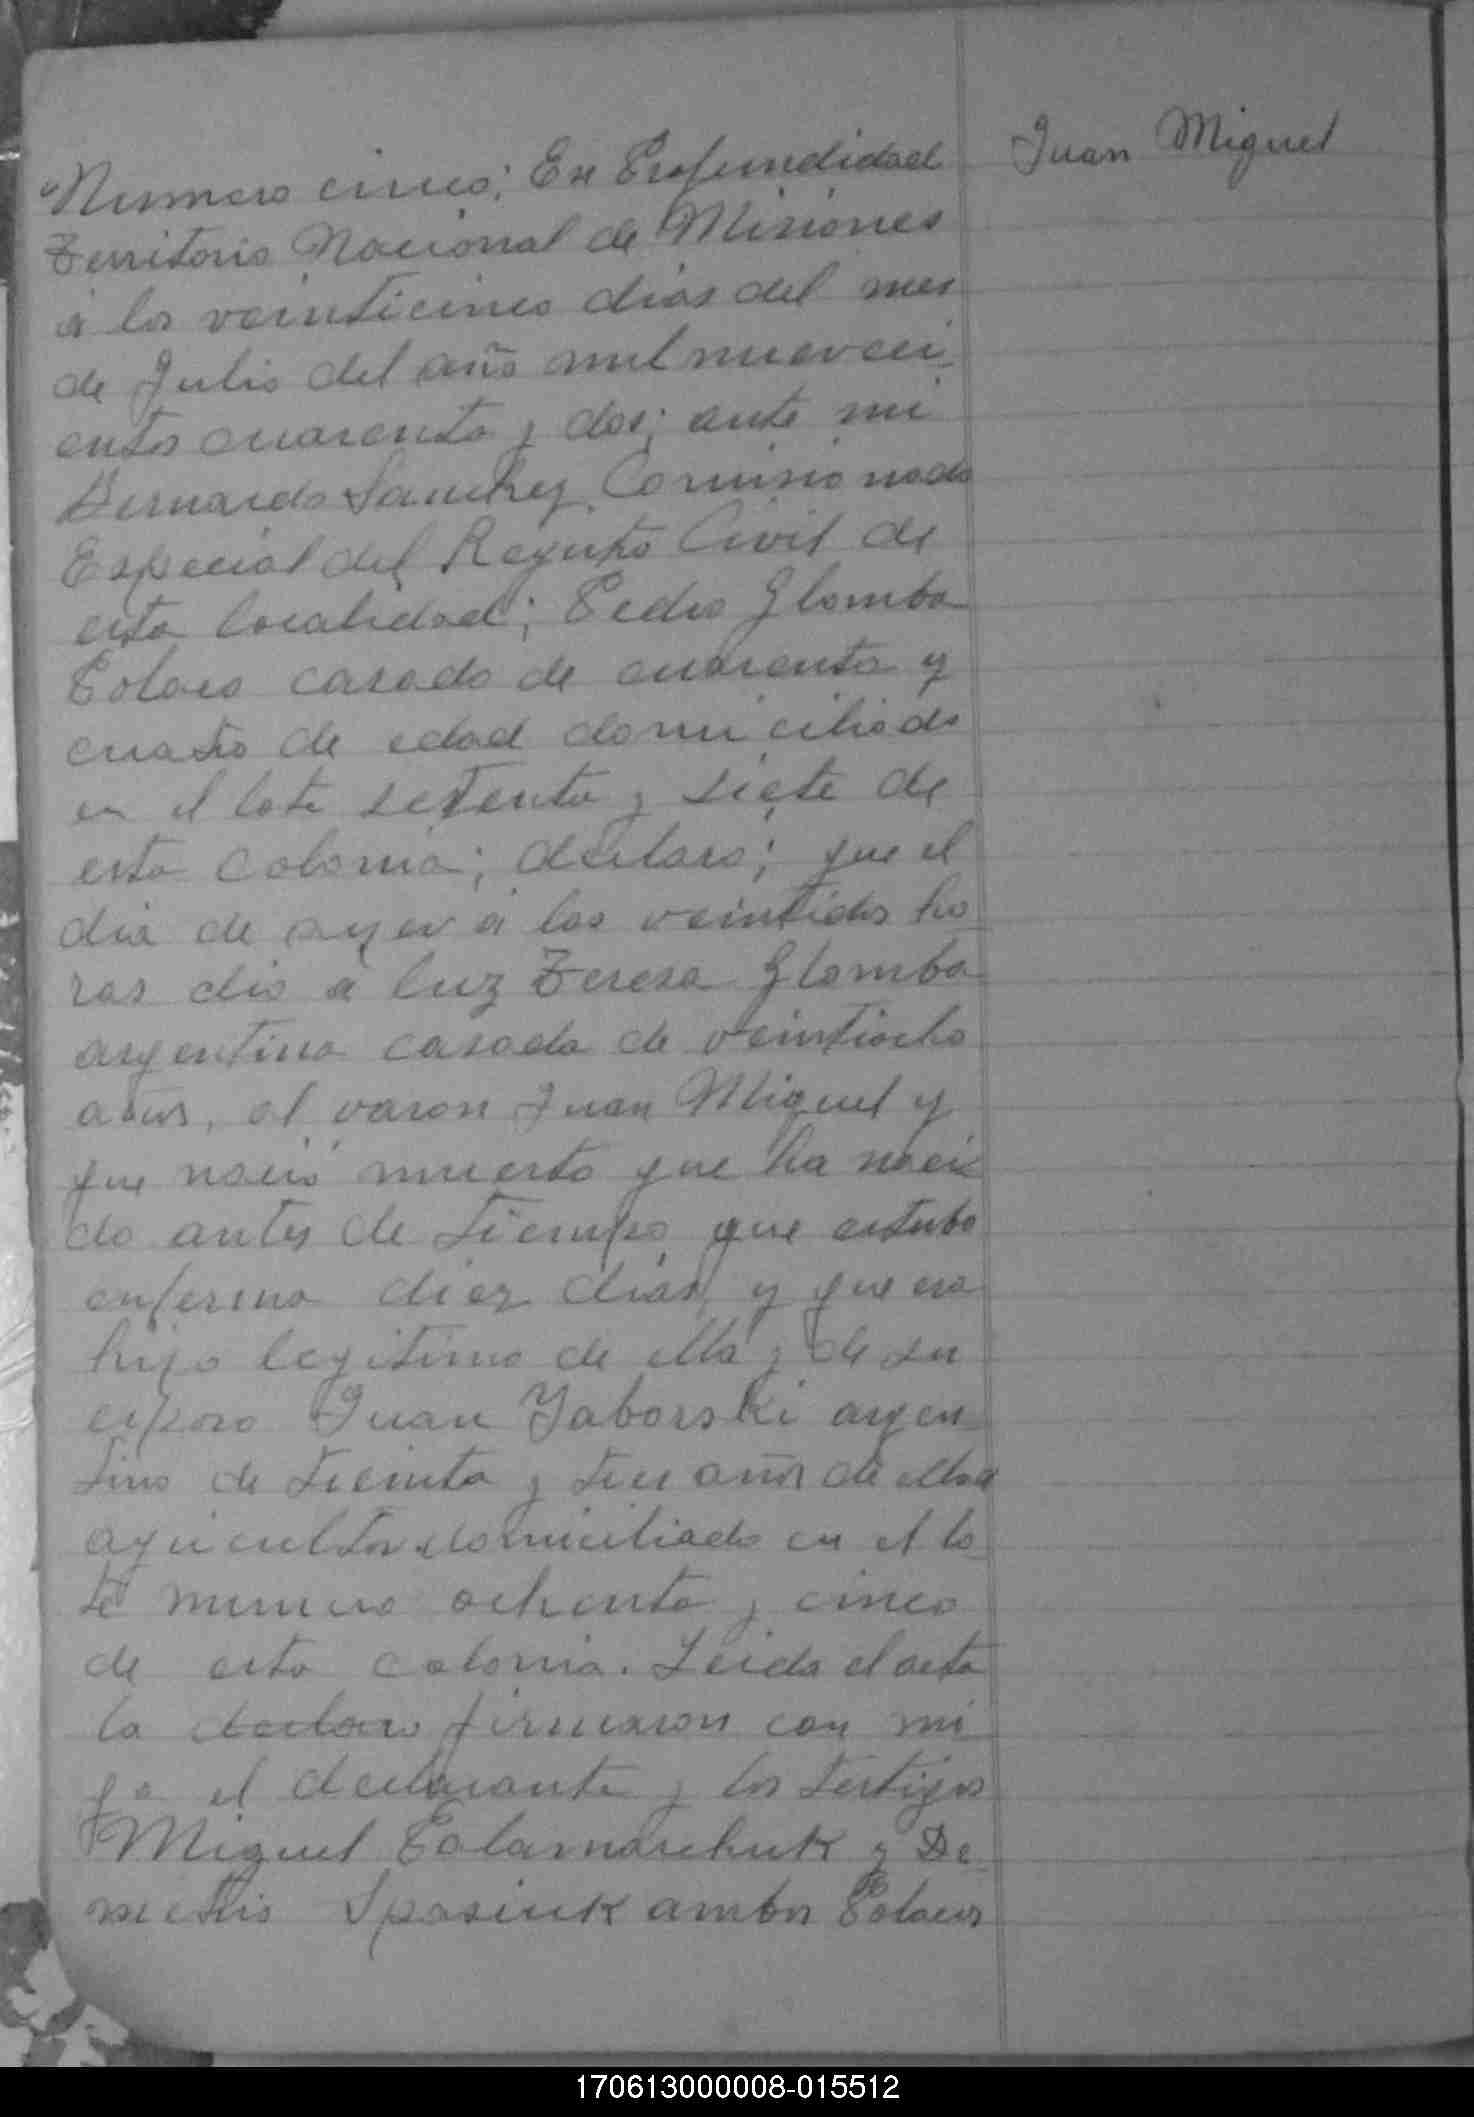 Juan Miguel
Numero cinco; En Profundidad
Territorio Nacional de Misiones
á los veinticinco dias del mes
de Julio del año mil noveci-
entos cuarenta y dos; ante mi
Bernardo Sanchez Comisionado
Especial del Registro Civil de
esta localidad; Pedro Glomba
Polaco casado de cuarenta y
cuatro de edad domiciliado
en el lote setenta y siete de
esta colonia; declaro; que el
dia de ayer á las veintidos ho-
ras dio á luz Teresa Glomba
argentina casada de veintiocho
años, al varon Juan Miguel y
que nació muerto que ha naci-
do antes de tiempo que estubo
enferma diez dias y que era
hijo legitimo de ella y de su
esposo Juan Jaborski argen-
tino de treinta y tres años de edad
agricultor domiciliado en el lo-
te numero ochenta y cinco
de esta colonia. Leida el acta
la declaro firmaron con mi
go el declarante y los testigos
Miguel Polamarchuk y De-
metrio Spasiuk ambos Polacos
170613000008-015512